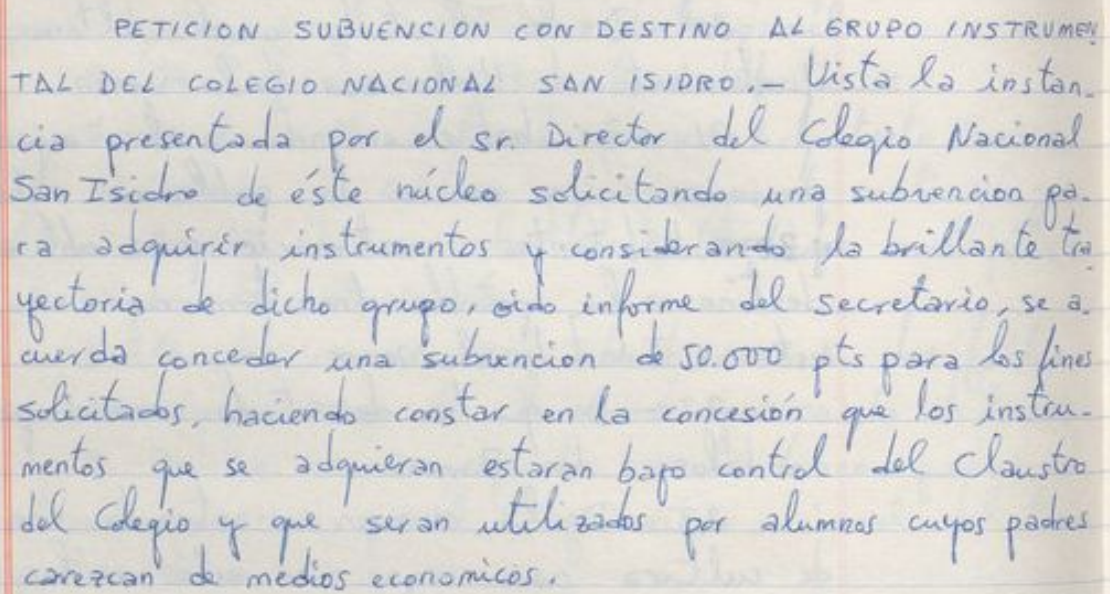 PETICION SUBVENCION CON DESTINO AL GRUPO INSTRUMEN
TAL DEL COLEGIO NACIONAL SAN ISIDRO.- Vista la instan-
cia presentada por el Sr. Director del Colegio Nacional
San Isidro de éste núcleo solicitando una subvencion pa-
ra adquirir instrumentos y considerando la brillante tra
yectoria de dicho grupo, oido informe del Secretario, se a-
cuerda conceder una subvencion de 50.000 pts para los fines
solicitados, haciendo constar en la concesión que los instru-
mentos que se adquieran estaran bajo control del Claustro
del Colegio y que seran utilizados por alumnos cuyos padres
carezcan de medios economicos.